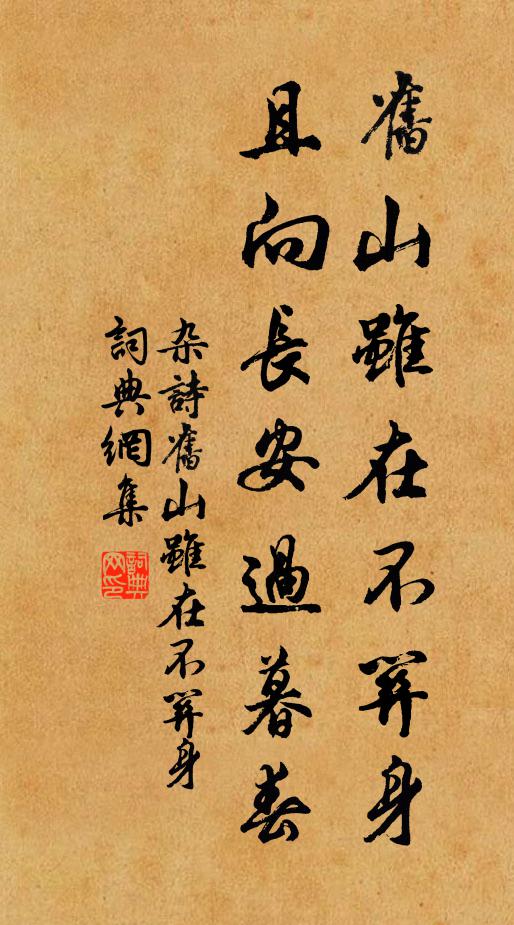 舊山雖在不關身
且向長安過暮春
杂詩舊山雖在不關身
詞典網集
詞典
网印